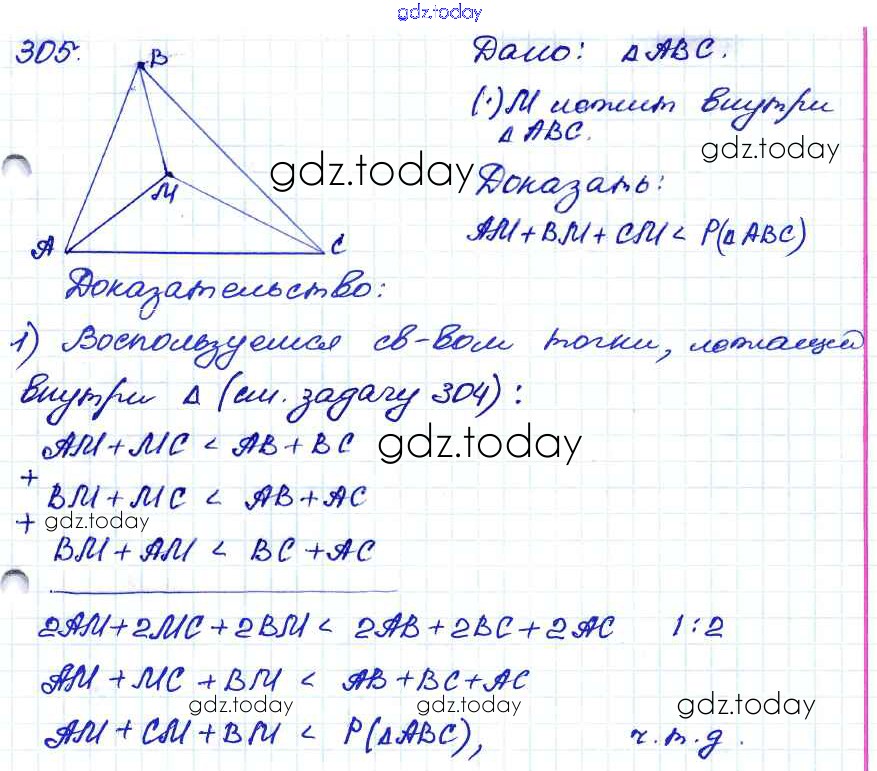 gdz.today
305.
B
M
A
C
Дано: △ABC.
(·)M лежит внутри
△ABC.
gdz.today
gdz.today
Доказать:
AM+BM+CM < P(△ABC)
Доказательство:
1) Воспользуемся св-вом точки, лежащей
внутри △ (см. задачу 304):
AM+MC < AB+BC
gdz.today
+
BM+MC < AB+AC
+
gdz.today
BM+AM < BC+AC
2AM+2MC+2BM < 2AB+2BC+2AC |:2
AM+MC+BM < AB+BC+AC
gdz.today
gdz.today
gdz.today
AM+CM+BM < P(△ABC), ч.т.д.